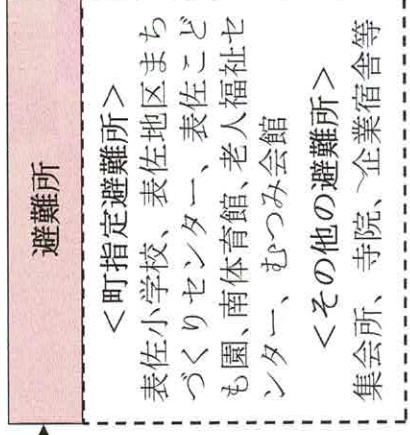 避難所
＜町指定避難所＞
表佐小学校、表佐地区まち
づくりセンター、表佐こど
も園、南体育館、老人福祉セ
ンター、むつみ会館
＜その他の避難所＞
集会所、寺院、企業宿舎等